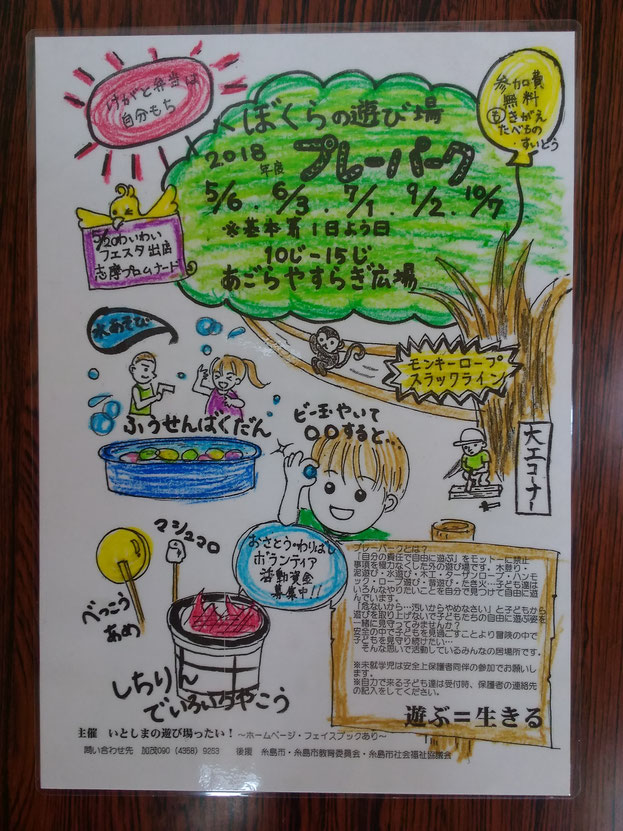 けがと弁当は
自分もち
ぼくらの遊び場
2018年度 プレーパーク
5/6.6/3.7/1.9/2.10/7
※基本第1日よう日
10じ-15じ
あごらやすらぎ広場
参加費
無料
もきがえ
たべもの
・すいとう
5/20わいわい
フェスタ出店
志摩プロムナード
水あそび
ふうせんばくだん
モンキーロープ
スラックライン
ビー玉やいて
〇〇すると...
大工コーナー
マシュマロ
べっこう
あめ
おさとう・わりばし
ボランティア
活動資金
募集中!!
しちりん
でいろいろやこう
プレーパークとは?
「自分の責任で自由に遊ぶ」をモットーに禁止
事項を極力なくした外の遊び場です。木登り・
泥遊び・水遊び・木工・ターザンロープ・ハンモ
ック・ロープ遊び・昔遊び・たき火…子ども達は
いろんなやりたいことを自分で見つけて自由に遊
んでいます。
「危ないから…汚いからやめなさい」と子どもから
遊びを取り上げないで子どもたちの自由に遊ぶ姿を
一緒に見守ってみませんか?
安全の中で子どもを見過ごすことより冒険の中で
子どもを見守り続けたい…
そんな思いで活動しているみんなの居場所です。
※未就学児は安全上保護者同伴の参加でお願いし
ます。
※自力で来る子ども達は受付時、保護者の連絡先
の記入をしてください。
遊ぶ=生きる
主催 いとしまの遊び場ったい!~ホームページ・フェイスブックあり~
問い合わせ先 加茂090(4358)9253 後援 糸島市・糸島市教育委員会・糸島市社会福祉協議会